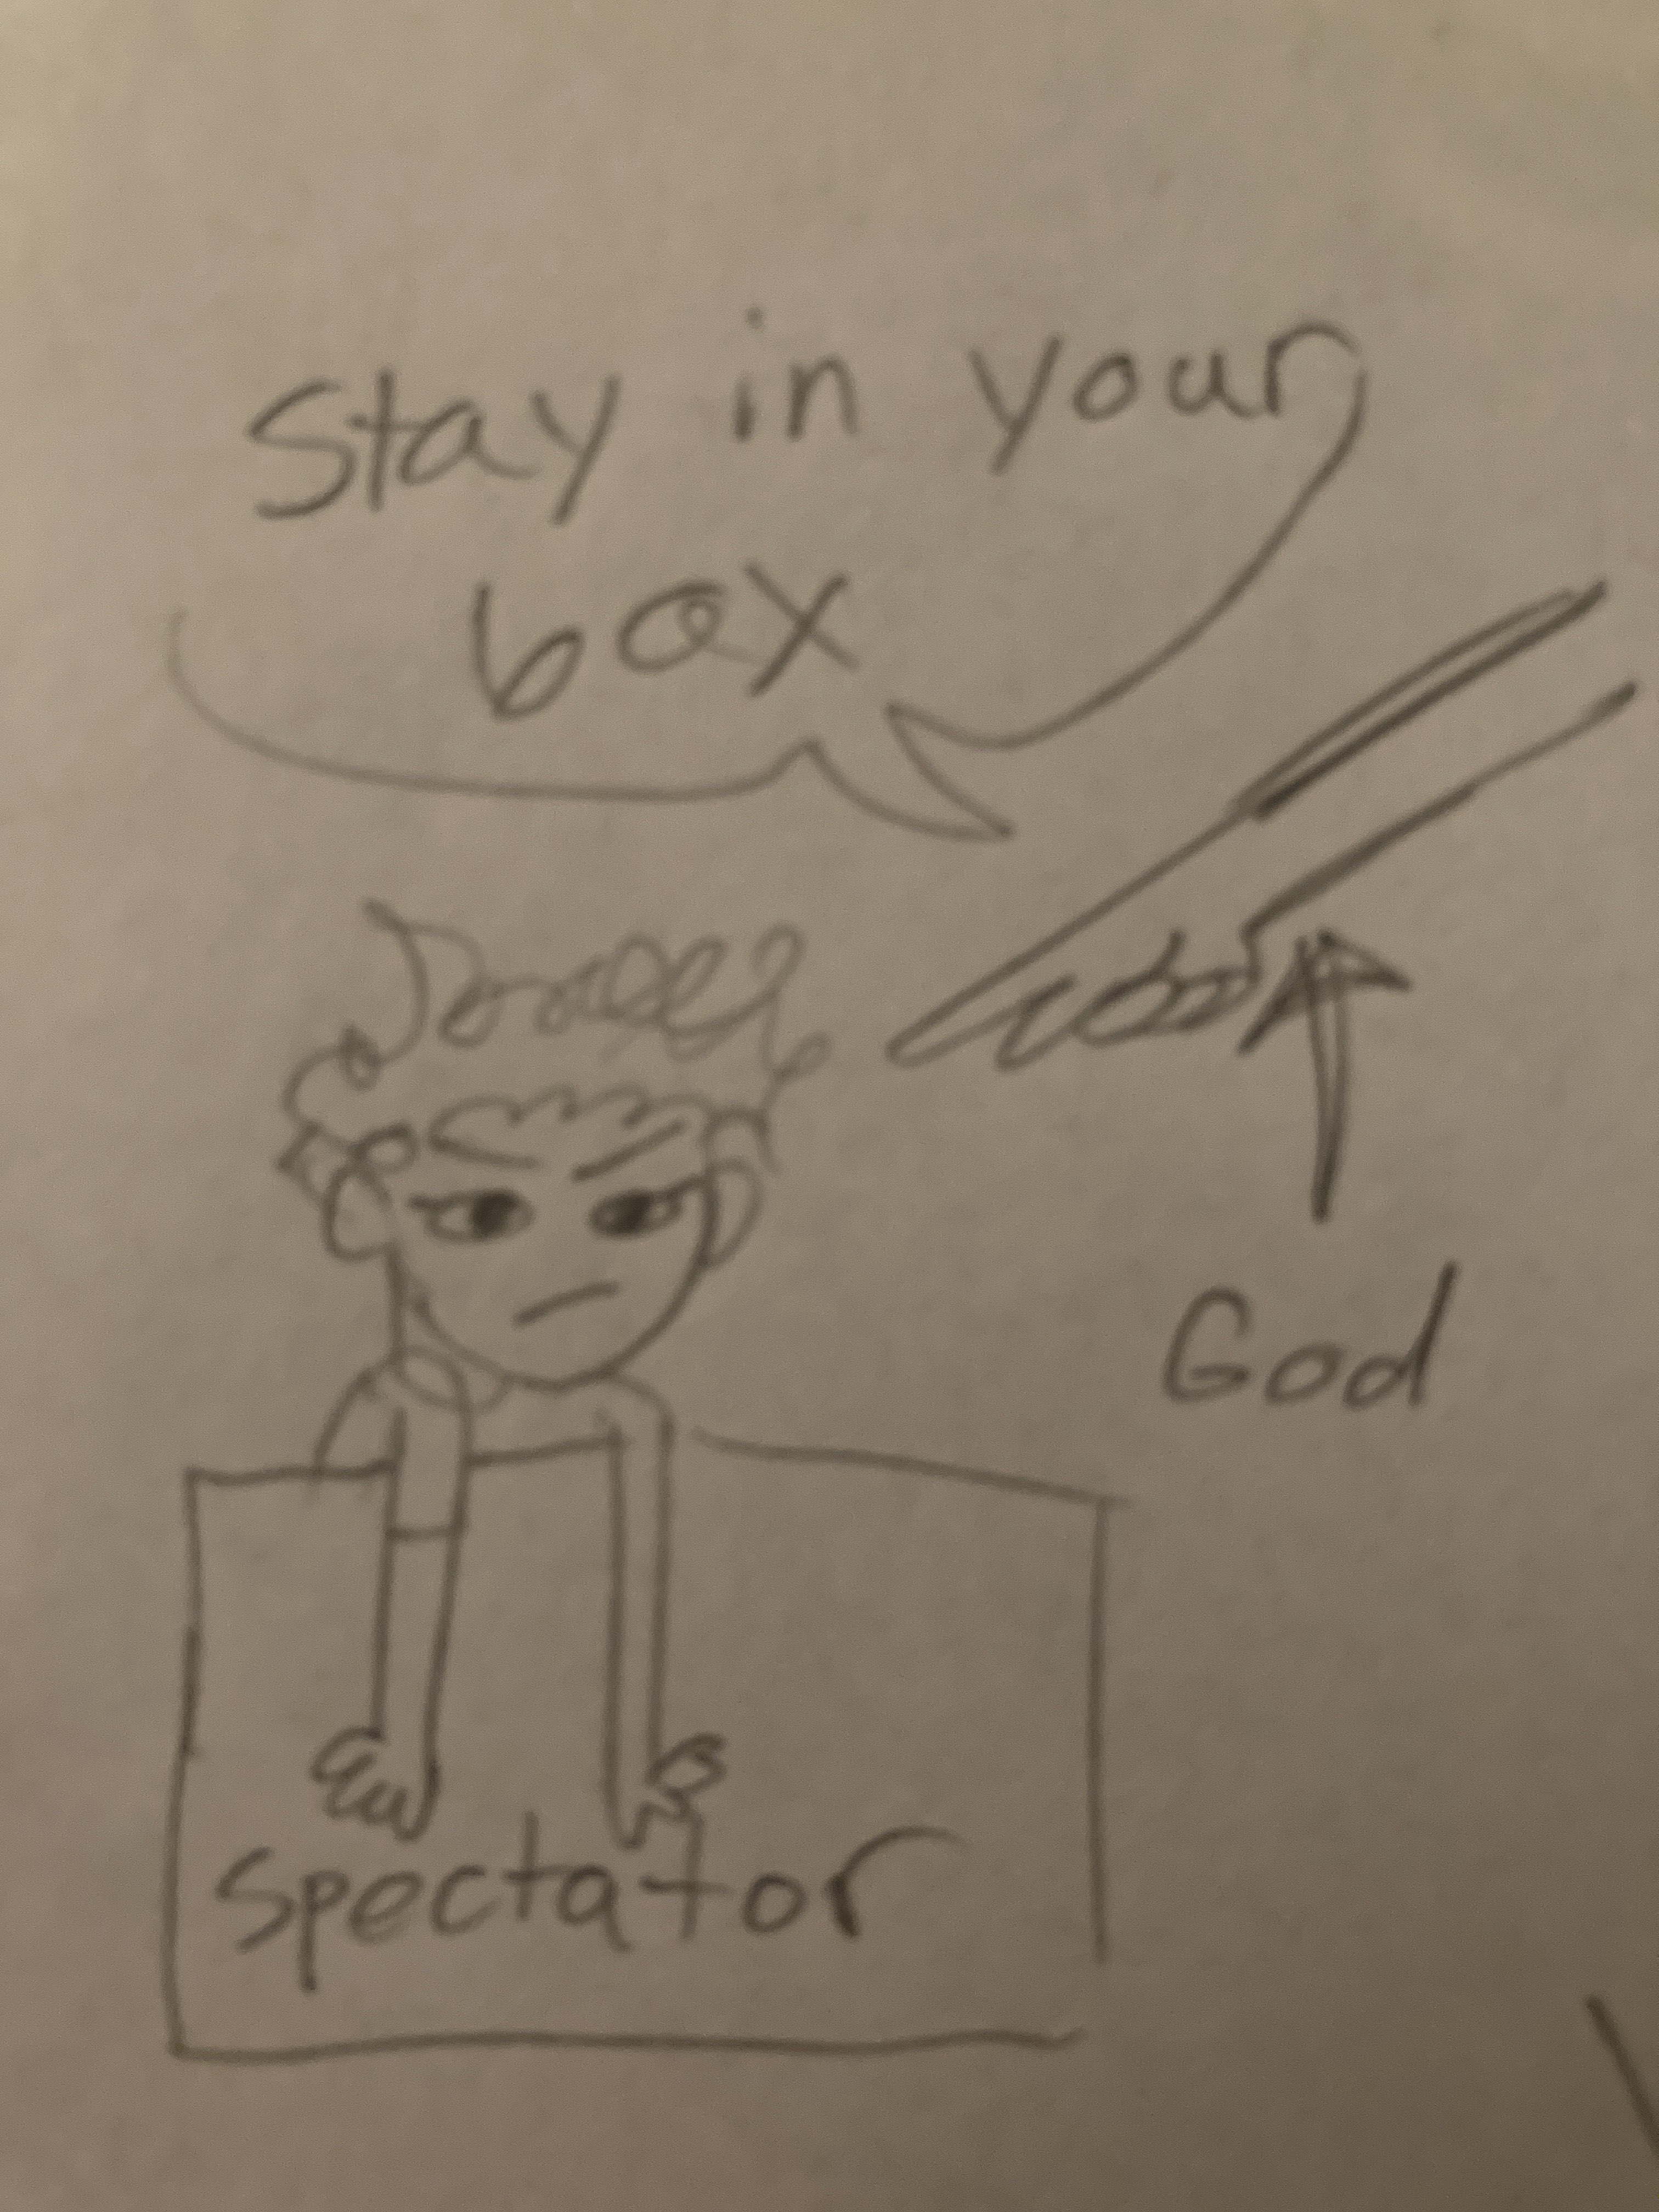 Stay in your
box
God
Spectator